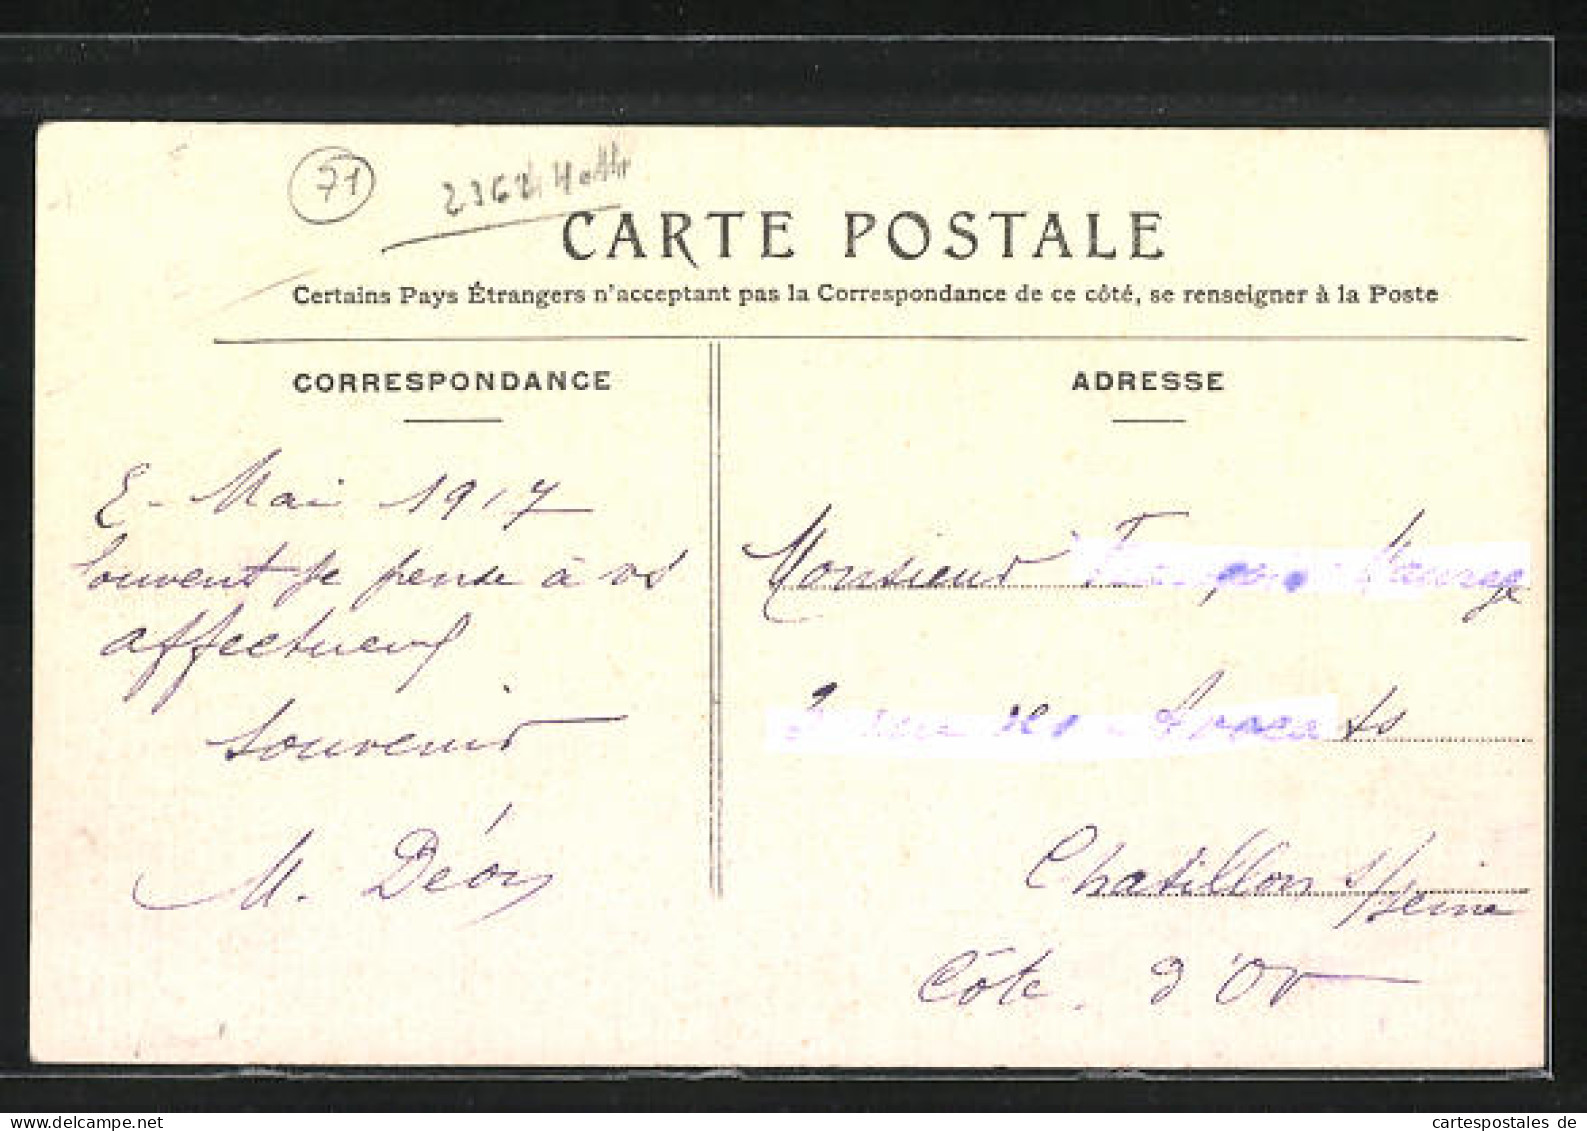 71
CARTE POSTALE
Certains Pays Étrangers n'acceptant pas la Correspondance de ce côté, se renseigner à la Poste
CORRESPONDANCE
Mai 1917
Souvent je pense à vs
affectueux
souvenir
M. Déon
ADRESSE
Monsieur
des Avocats
Chatillon s/Seine
Côte d'Or
cartespostales de